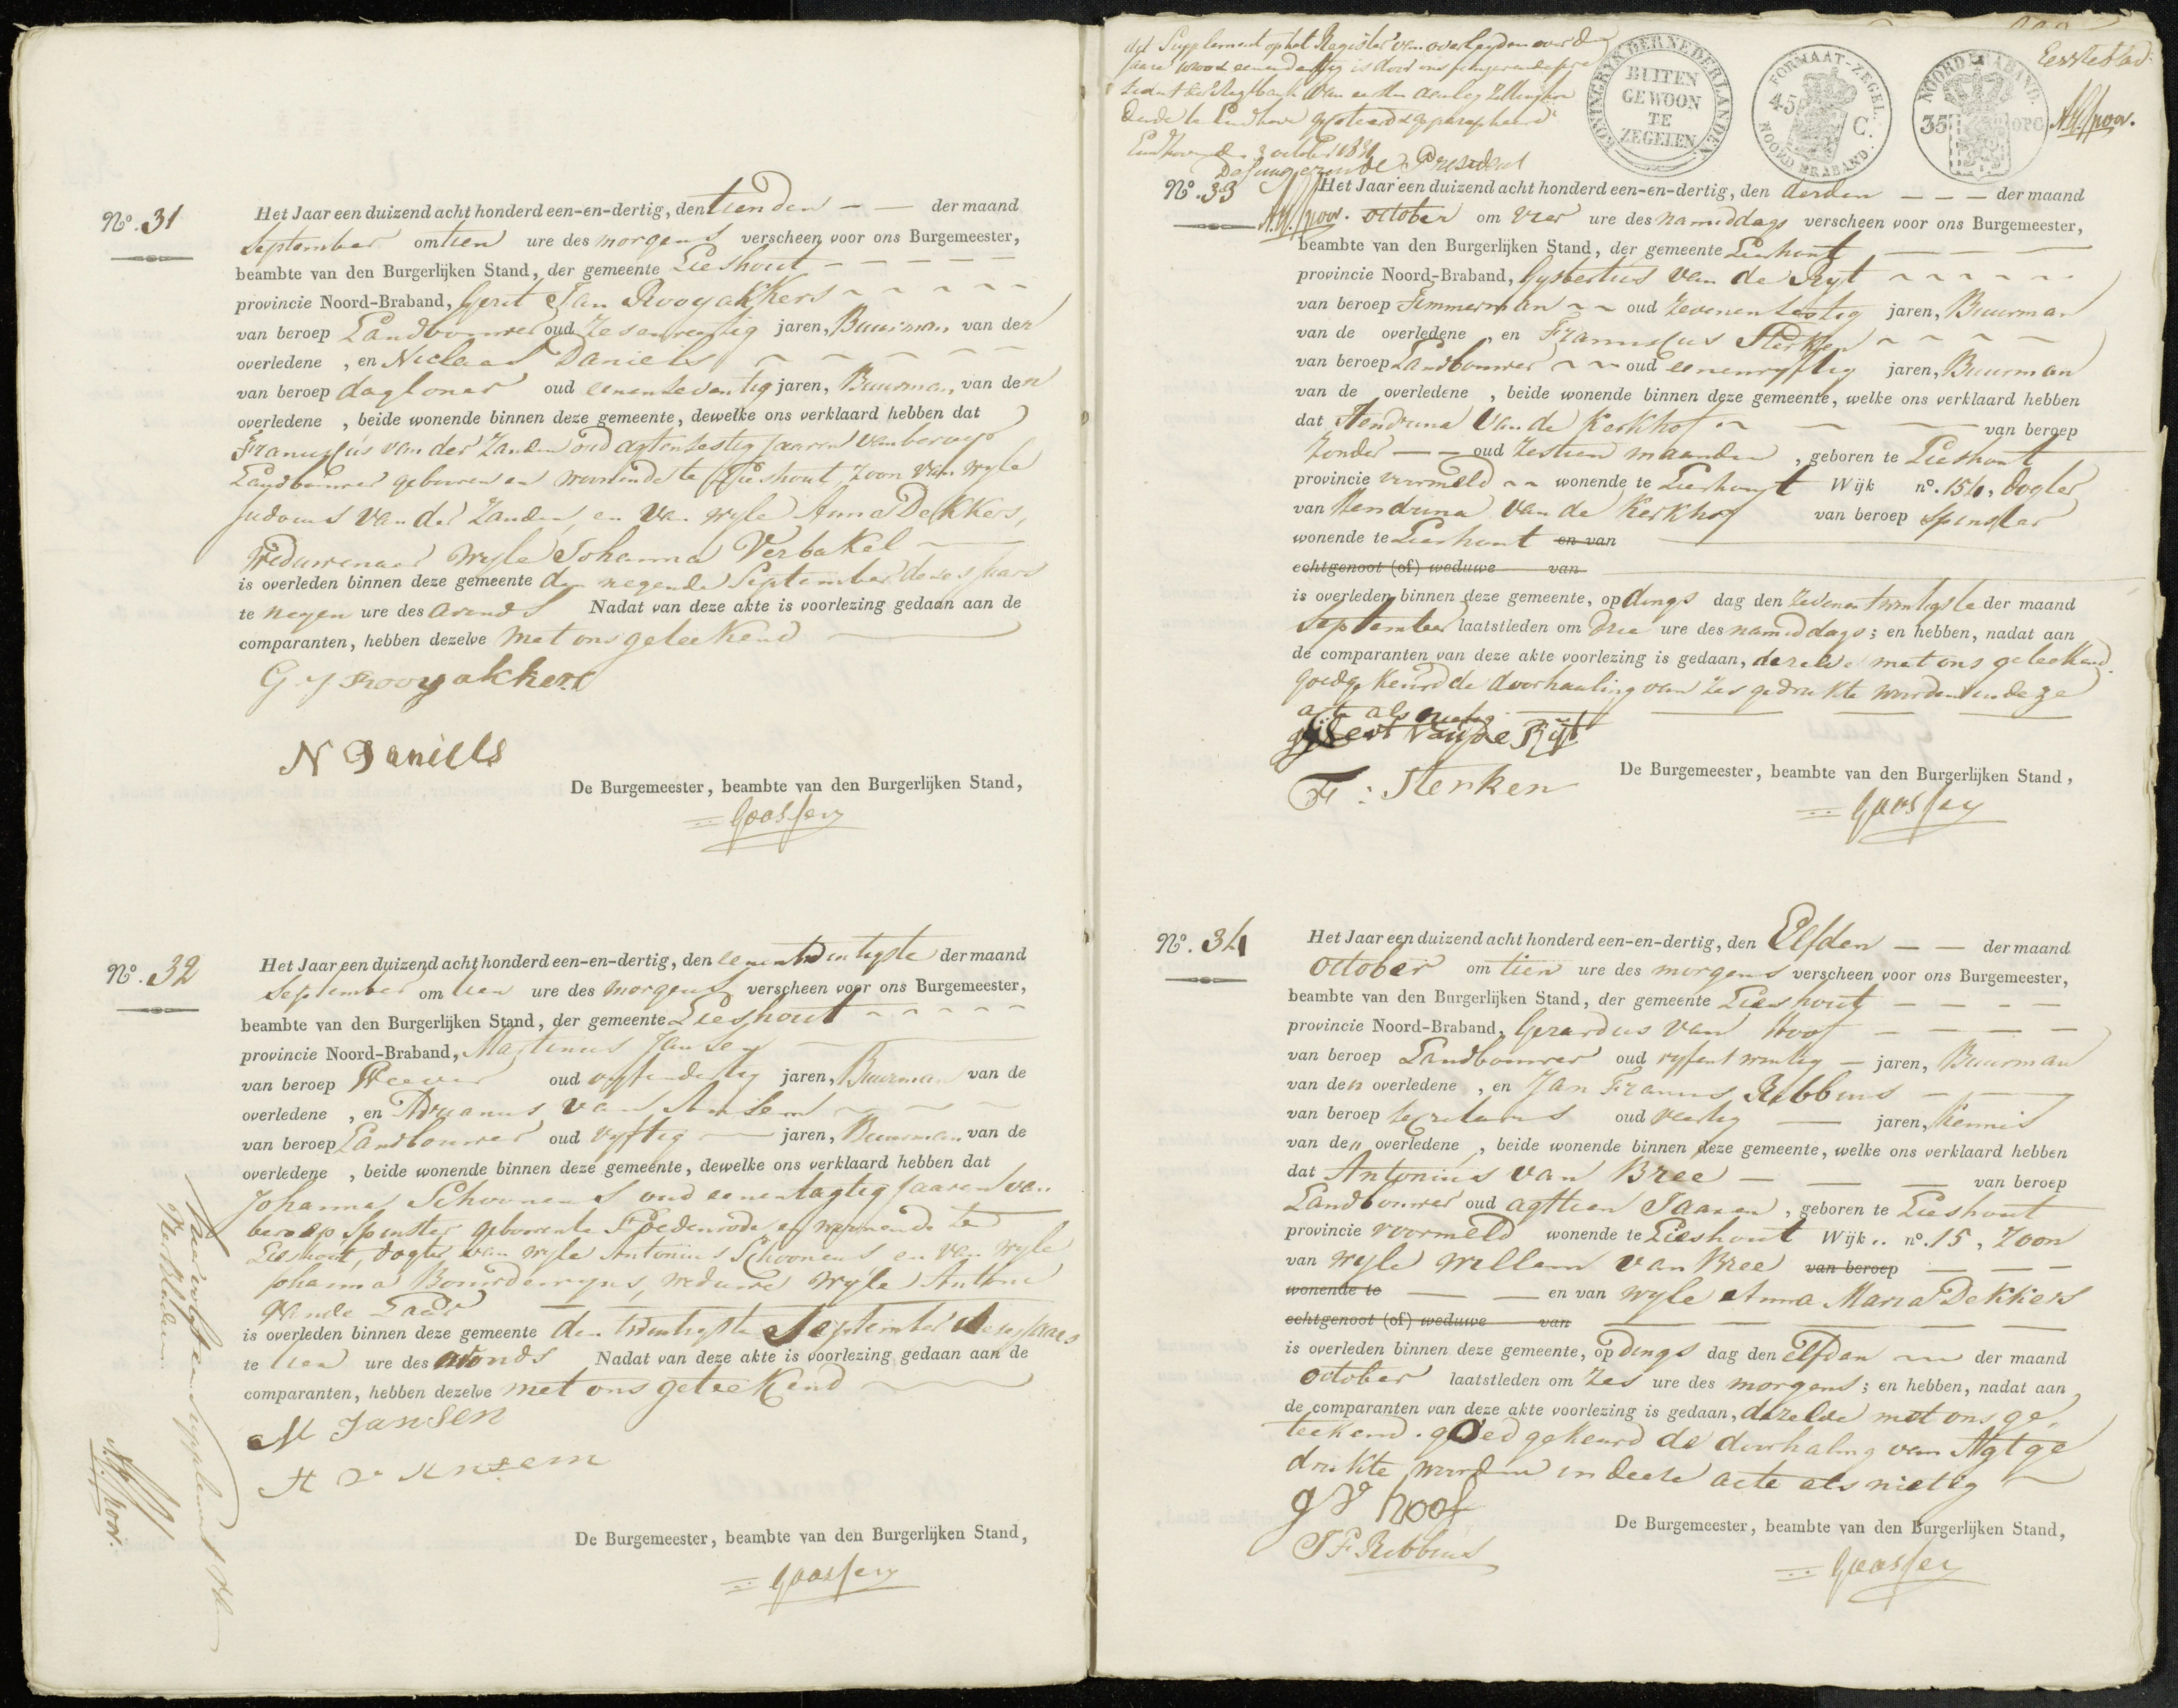 No. 31
Het Jaar een duizend acht honderd een-en-dertig, den tienden — — der maand
September om tien ure des morgens verscheen voor ons Burgemeester,
beambte van den Burgerlijken Stand, der gemeente Lieshout
provincie Noord-Braband, Gerit Jan Rooyakkers
van beroep Landbouwer oud Zesenveertig jaren, Buurman van den
overledene , en Niclaas Daniels
van beroep dagloner oud eenenseventig jaren, Buurman van den
overledene , beide wonende binnen deze gemeente, dewelke ons verklaard hebben dat
Franciscus van der Zanden oud agtensestig Jaaren van beroep
Landbouwer gebooren en woonende te Lieshout, Zoon van wyle
Judocus van der Zanden, en van wyle Anna Dekkers,
Weduwenaar wyle Johanna Verbakel
is overleden binnen deze gemeente den negende September dezes Jaars
te negen ure des avonds Nadat van deze akte is voorlezing gedaan aan de
comparanten, hebben dezelve met ons geteekend
G J Rooyakkers
N Daniels
De Burgemeester, beambte van den Burgerlijken Stand,
Goossen
No. 32
Het Jaar een duizend acht honderd een-en-dertig, den eenentwintigste der maand
September om tien ure des morgens verscheen voor ons Burgemeester,
beambte van den Burgerlijken Stand, der gemeente Lieshout
provincie Noord-Braband, Martinus Jansen
van beroep Weever oud vyfendertig jaren, Buurman van de
overledene , en Adrianus van Ansem
van beroep Landbouwer oud vyftig — jaren, Buurman van de
overledene , beide wonende binnen deze gemeente, dewelke ons verklaard hebben dat
Johanna Schoonens oud eenentagtig Jaaren van
beroep Spinster gebooren te St Oedenrode en woonende te
Lieshout, dogter van wyle Antonius Schoonens en van wyle
Johanna Bouwdewyns, weduwe wyle Antonie
van de Laar
is overleden binnen deze gemeente den twintigste September dezes Jaars
te tien ure des avonds Nadat van deze akte is voorlezing gedaan aan de
comparanten, hebben dezelve met ons geteekend
M Jansen
A V Ansem
De Burgemeester, beambte van den Burgerlijken Stand,
Goossen
Supplement op het Register van overleyden over den
Jaare een en dertig is door ons
van eersten aanleg
te Eindhoven gequoteerd & geparapheerd
Eindhoven den 3 october 1831
De fungerende President
KONINGRYK DER NEDERLANDEN
BUITEN
GEWOON
TE
ZEGELEN
FORMAAT-ZEGEL
45 C.
NOORD BRABAND.
NOORD BRABAND.
35 OPC
Eerste blad
No. 33
Het Jaar een duizend acht honderd een-en-dertig, den derden — — — der maand
october om vier ure des namiddags verscheen voor ons Burgemeester,
beambte van den Burgerlijken Stand, der gemeente Lieshout
provincie Noord-Braband, Gysbertus van de Ryt
van beroep Timmerman oud Zevenensestig jaren, Buurman
van de overledene , en Franciscus Sterken
van beroep Landbouwer oud eenenvyftig jaren, Buurman
van de overledene , beide wonende binnen deze gemeente, welke ons verklaard hebben
dat Hendrina van de Kerkhof van beroep
Zonder — — oud Zestien maanden , geboren te Lieshout
provincie voormeld wonende te Lieshout Wijk no. 154, dogter
van Hendrina van de Kerkhof van beroep Spinster
wonende te Lieshout en van
echtgenoot (of) weduwe van
is overleden binnen deze gemeente, op dings dag den Zevenentwintigste der maand
September laatstleden om drie ure des namiddags; en hebben, nadat aan
de comparanten van deze akte voorlezing is gedaan, dezelve met ons geteekend.
goedgekeurd de doorhaaling van Zes gedrukte woorden in deze
acte als nietig
gijsbert van de Rijt
F: Sterken
De Burgemeester, beambte van den Burgerlijken Stand,
Goossen
No. 34
Het Jaar een duizend acht honderd een-en-dertig, den Elfden — — der maand
October om tien ure des morgens verscheen voor ons Burgemeester,
beambte van den Burgerlijken Stand, der gemeente Lieshout
provincie Noord-Braband, Gerardus van Hoof
van beroep Landbouwer oud vyfentwintig — jaren, Buurman
van den overledene , en Jan Francus Rebbens
van beroep Secretaris oud veertig — jaren, Kennis
van den overledene , beide wonende binnen deze gemeente, welke ons verklaard hebben
dat Antonius van Bree — — — van beroep
Landbouwer oud agttien Jaaren , geboren te Lieshout
provincie voormeld wonende te Lieshout Wijk .. no. 15, Zoon
van wyle Willem van Bree van beroep — — —
wonende te — — en van wyle Anna Maria Dekkers
echtgenoot (of) weduwe van
is overleden binnen deze gemeente, op dings dag den Elfden der maand
October laatstleden om Zes ure des morgens; en hebben, nadat aan
de comparanten van deze akte voorlezing is gedaan, dezelve met ons ge,
teekend. goedgekeurd de doorhaling van Agt ge
drukte woorden in deeze acte als nietig
g V hoof
J F Rebbens
De Burgemeester, beambte van den Burgerlijken Stand,
Goossen